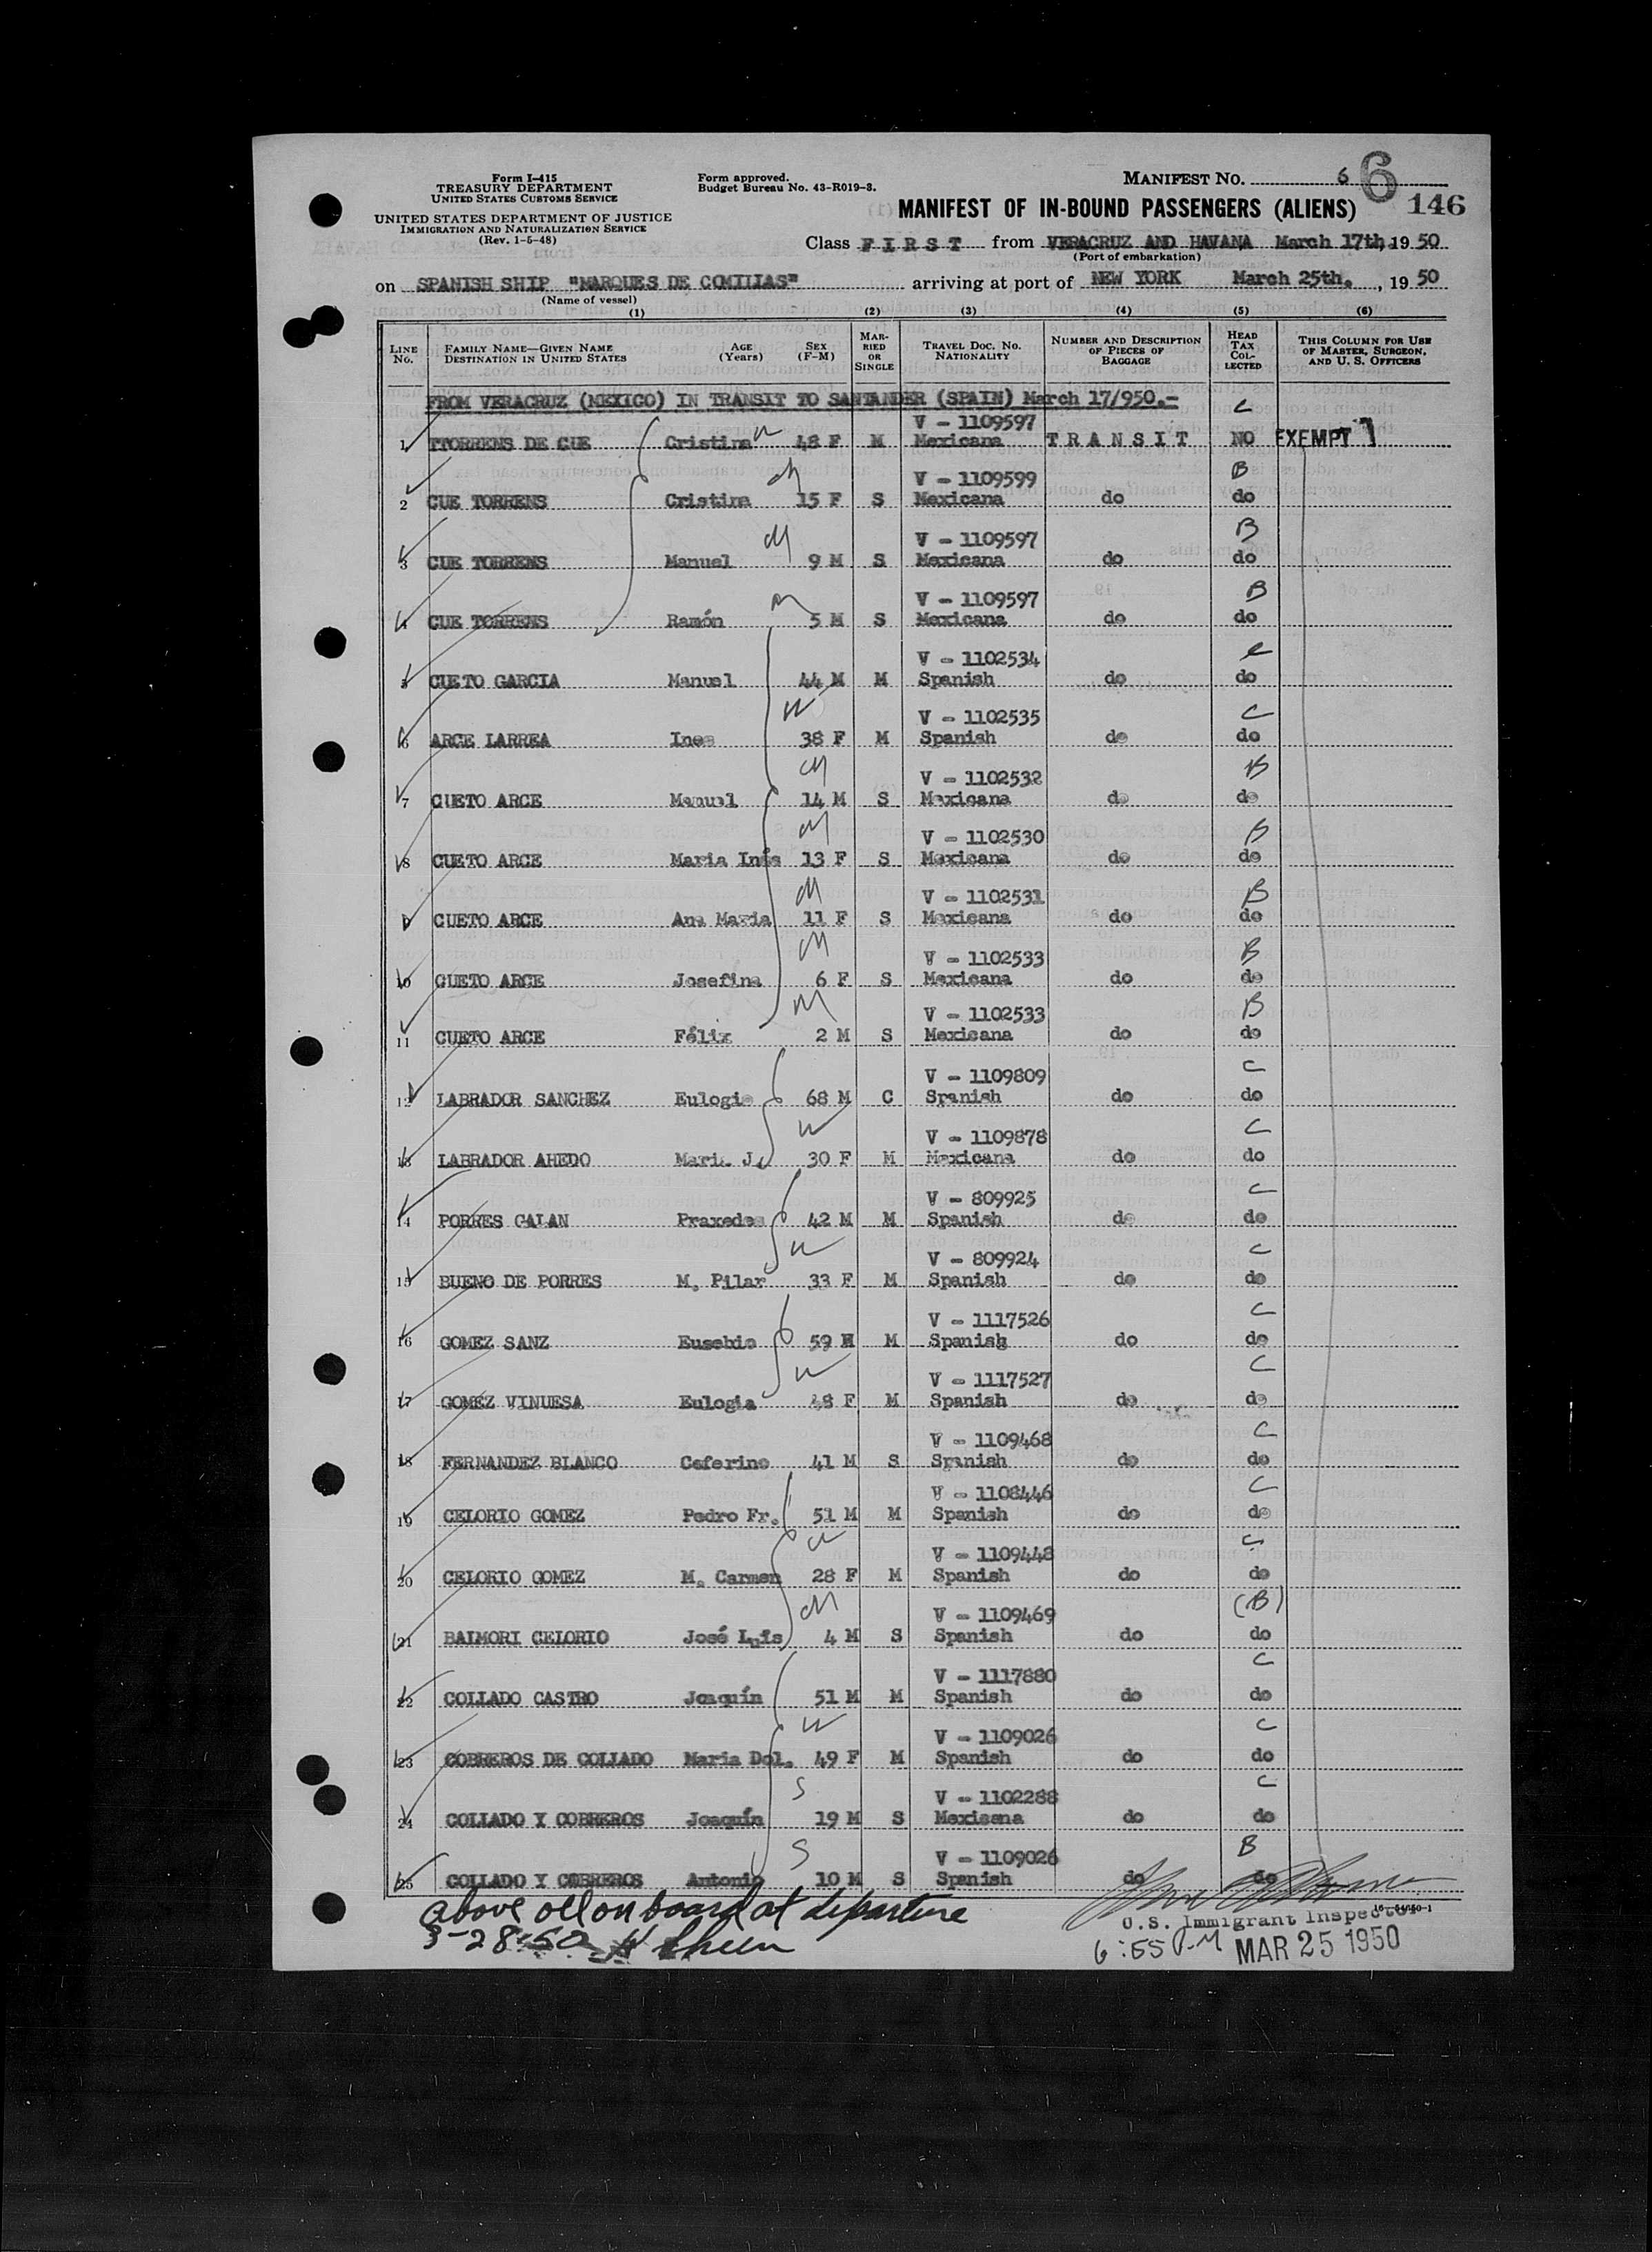 Form I-415
TREASURY DEPARTMENT
UNITED STATES CUSTOMS SERVICE
UNITED STATES DEPARTMENT OF JUSTICE
IMMIGRATION AND NATURALIZATION SERVICE
(Rev. 1-5-48)
Form approved.
Budget Bureau No. 43-R019-3.
MANIFEST NO. 6 6
MANIFEST OF IN-BOUND PASSENGERS (ALIENS) 146
Class FIRST from VERACRUZ AND HAVANA March 17th, 1950
(Port of embarkation)
on SPANISH SHIP "MARQUES DE COMILIAS" arriving at port of NEW YORK March 25th. , 1950
(Name of vessel)
(1) (2) (3) (4) (5) (6)
LINE NO. FAMILY NAME—GIVEN NAME DESTINATION IN UNITED STATES AGE (Years) SEX (F-M) MARRIED OR SINGLE TRAVEL DOC. NO. NATIONALITY NUMBER AND DESCRIPTION OF PIECES OF BAGGAGE HEAD TAX COLLECTED THIS COLUMN FOR USE OF MASTER, SURGEON, AND U. S. OFFICERS
FROM VERACRUZ (MEXICO) IN TRANSIT TO SANTANDER (SPAIN) March 17/950.- C
V - 1109597
1 TTORRENS DE CUE Cristina 48 F M Mexicana TRANSIT NO EXEMPT
V - 1109599 B
2 CUE TORRENS Cristina 15 F S Mexicana do do
V - 1109597 B
3 CUE TORRENS Manuel 9 M S Mexicana do do
V - 1109597 B
4 CUE TORRENS Ramón 5 M S Mexicana do do
V - 1102534 C
5 CUETO GARCIA Manuel 44 M M Spanish do do
V - 1102535 C
6 ARCE LARREA Ines 38 F M Spanish do do
V - 1102532 B
7 CUETO ARCE Manuel 14 M S Mexicana do do
V - 1102530 B
8 CUETO ARCE Maria Inés 13 F S Mexicana do do
V - 1102531 B
9 CUETO ARCE Ana Maria 11 F S Mexicana do do
V - 1102533 B
10 CUETO ARCE Josefina 6 F S Mexicana do do
V - 1102533 B
11 CUETO ARCE Félix 2 M S Mexicana do do
V - 1109809 C
12 LABRADOR SANCHEZ Eulogio 68 M C Spanish do do
V - 1109878 C
13 LABRADOR AHEDO Maria J. 30 F M Mexicana do do
V - 809925 C
14 PORRES GALAN Praxedes 42 M M Spanish do do
V - 809924 C
15 BUENO DE PORRES M. Pilar 33 F M Spanish do do
V - 1117526 C
16 GOMEZ SANZ Eusebio 59 M M Spanish do do
V - 1117527 C
17 GOMEZ VINUESA Eulogia 48 F M Spanish do do
V - 1109468 C
18 FERNANDEZ BLANCO Ceferino 41 M S Spanish do do
V - 1108446 C
19 CELORIO GOMEZ Pedro Fr. 51 M M Spanish do do
V - 1109448 C
20 CELORIO GOMEZ M. Carmen 28 F M Spanish do do
V - 1109469 (B)
21 BALMORI CELORIO José Luis 4 M S Spanish do do
V - 1117880 C
22 COLLADO CASTRO Joaquín 51 M M Spanish do do
V - 1109026 C
23 COBREROS DE COLLADO Maria Dol. 49 F M Spanish do do
V - 1102288 C
24 COLLADO Y COBREROS Joaquín 19 M S Mexicana do do
V - 1109026 B
25 COLLADO Y COBREROS Antonio 10 M S Spanish do do
above all on board at departure
3-28-50
U.S. Immigrant Inspector
6:55 P.M MAR 25 1950